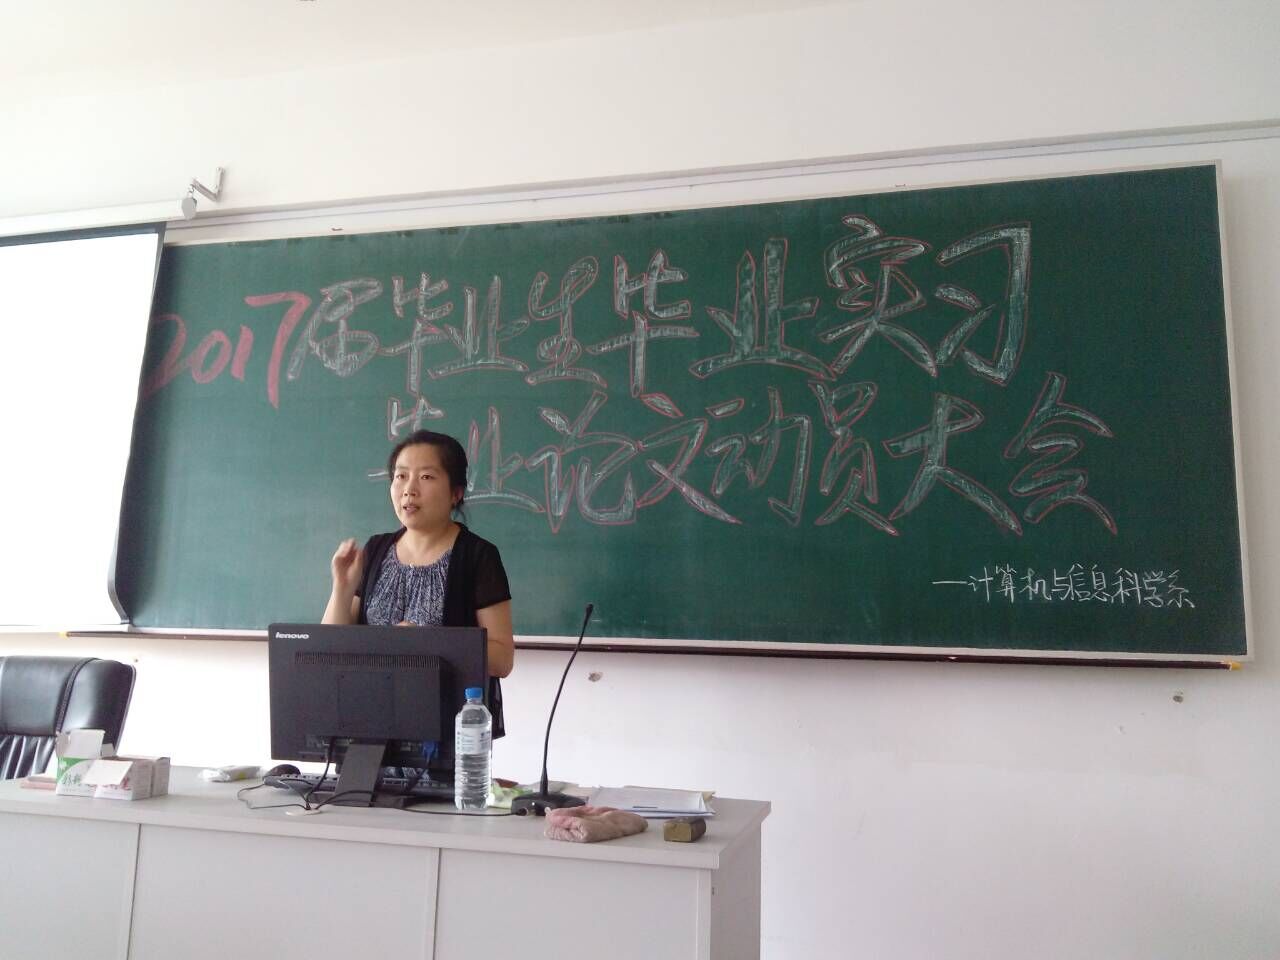 2017届毕业生毕业实习
毕业论文动员大会
—计算机与信息科学系
lenovo